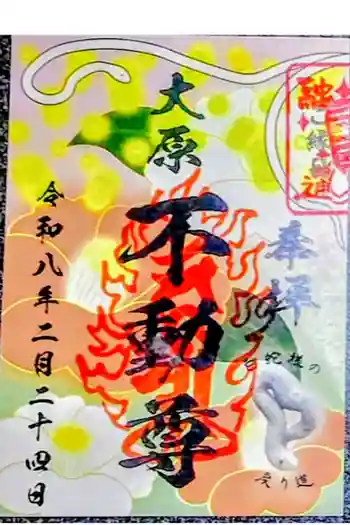 奉拝
大原
不動尊
令和八年二月二十四日
白蛇様の
通り道